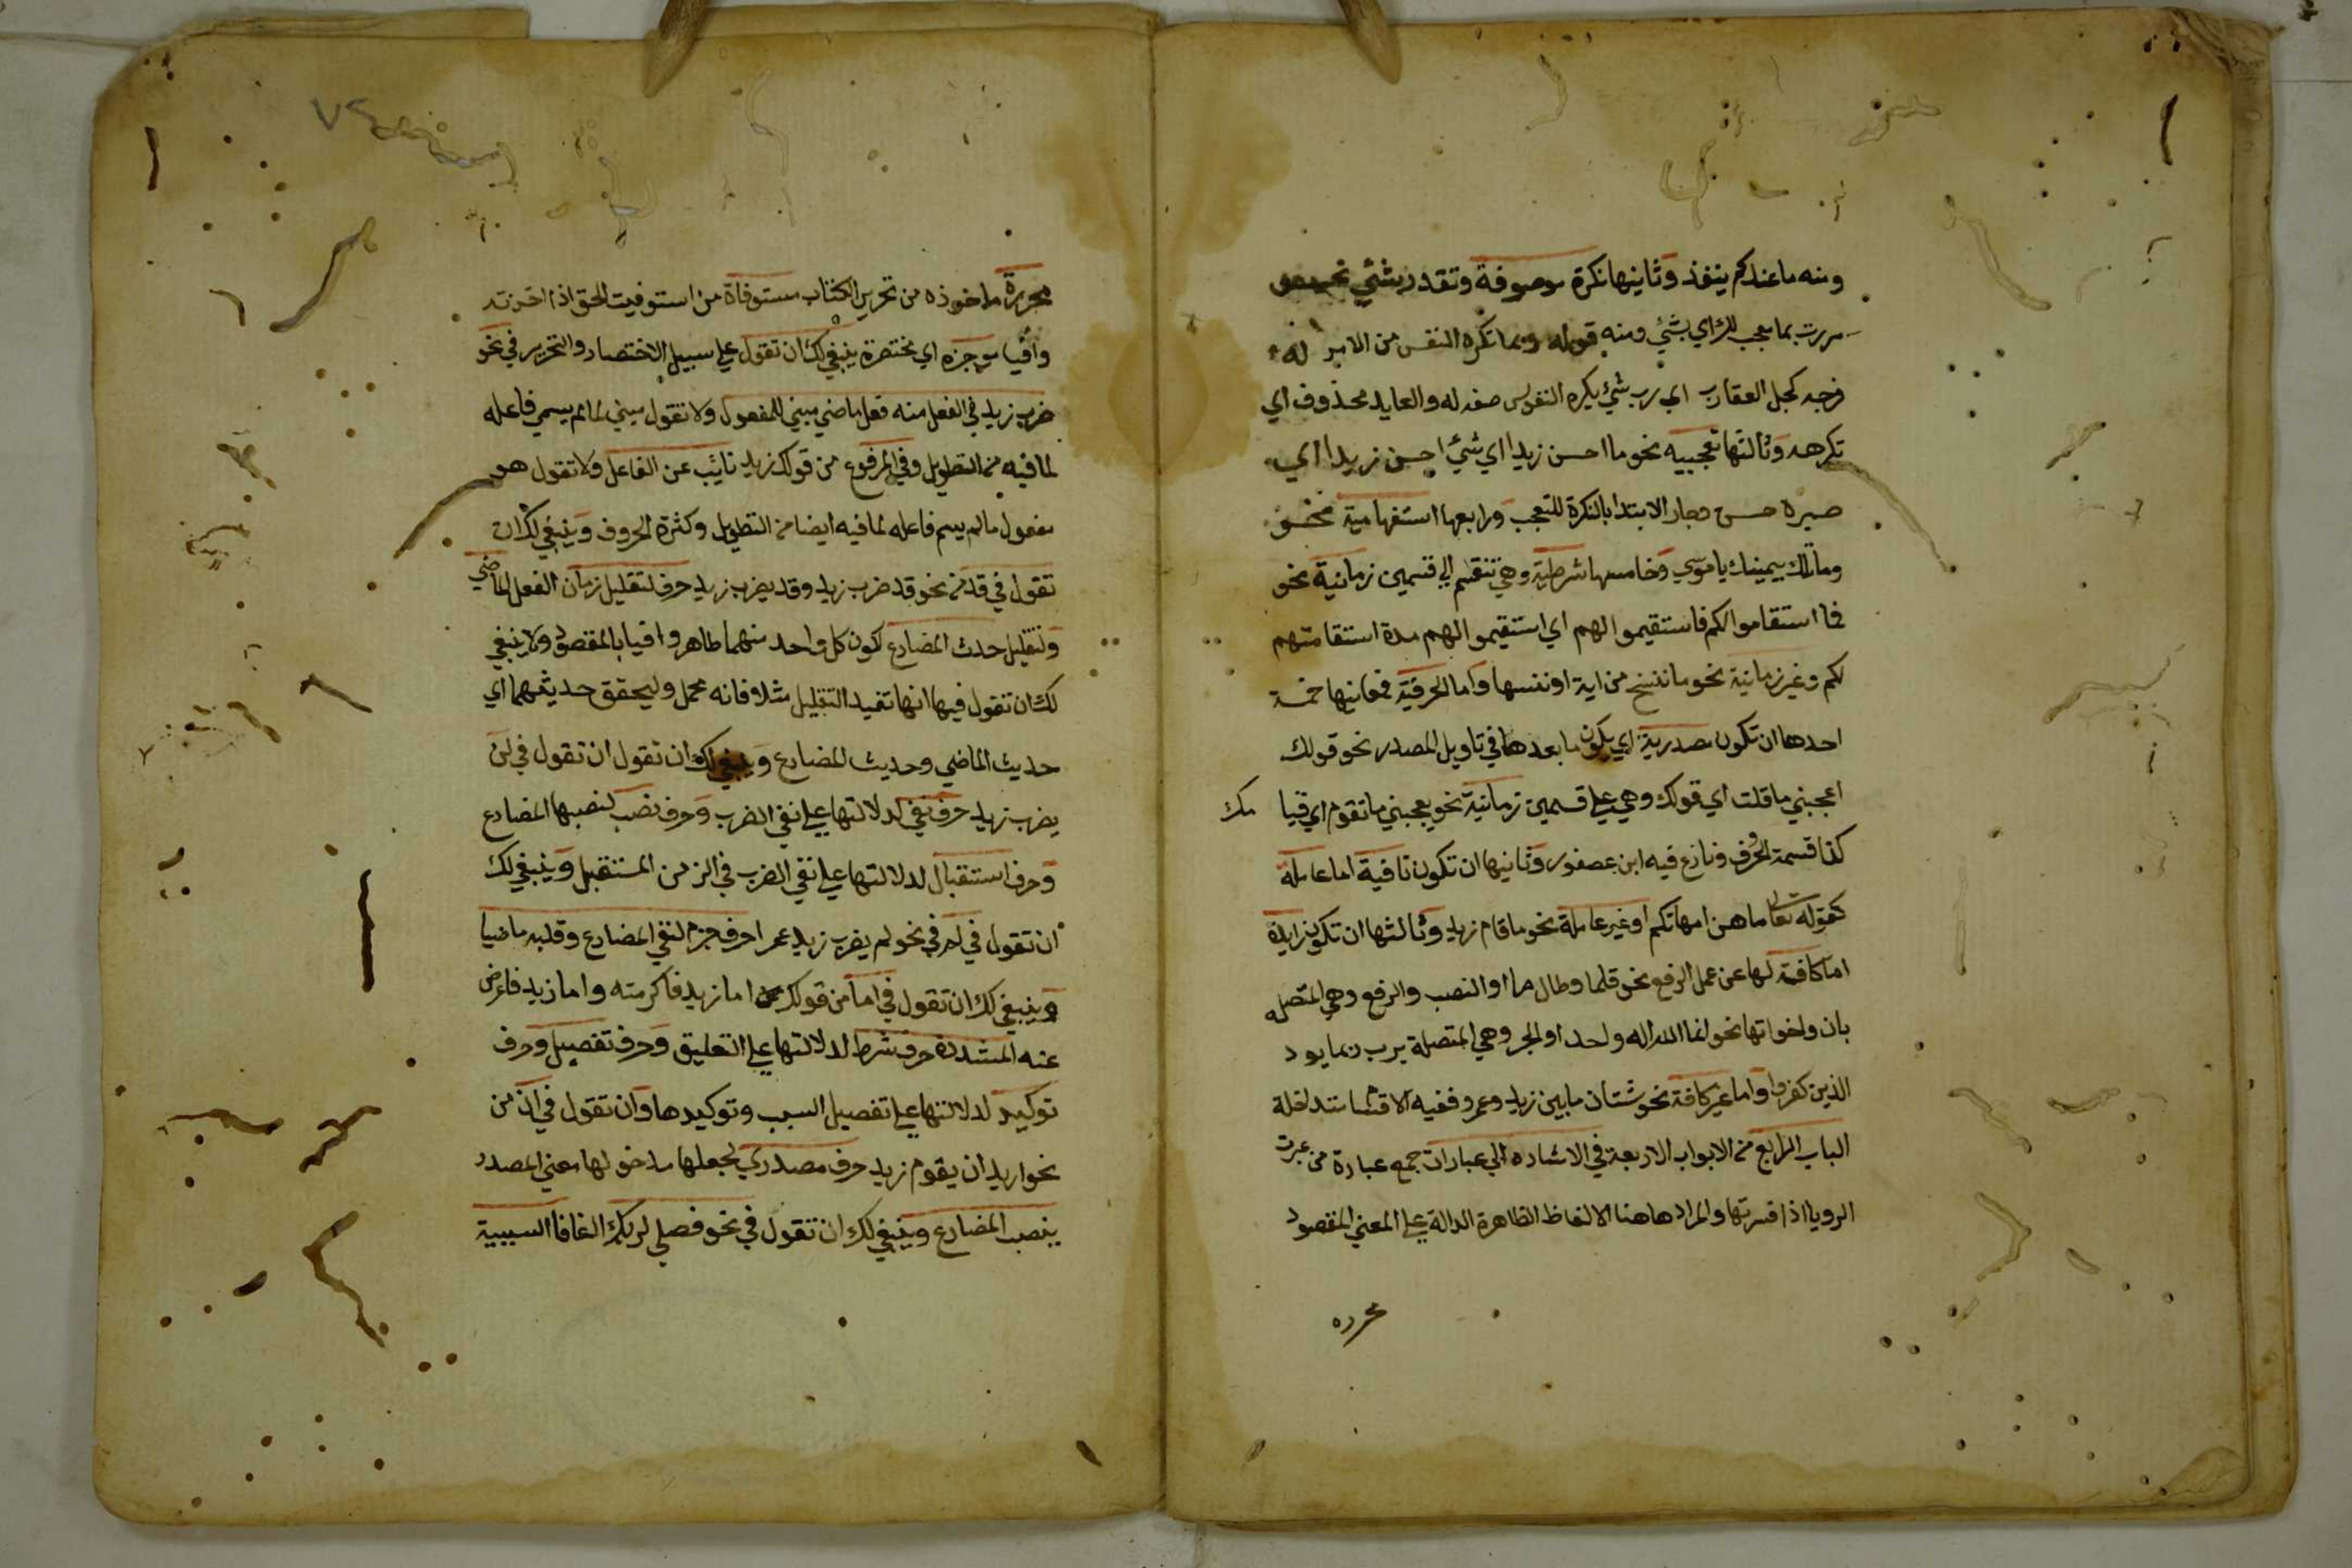 ومنه ما عندكم ينفذ وثانيها نكرة موصوفة وتقدر بشئي نحو
مررت بما معجب لك اي بشئ ومنه قوله ربما تكره النفس من الامر له
فرجه كحل العقارب اي رب شئ يكره النفوس صفه له والعايد محذوف اي
تكرهه وثالثها تعجبيه نحو ما احسن زيدا اي شئ احسن زيدا اي
صيره حسن وجاز الابتدا بالنكرة للتعجب ورابعها استفهامية نحو
وما تلك بيمينك يا موسي وخامسها شرطية وهي تنقسم الي قسمين زمانية نحو
فما استقاموا لكم فاستقيموا لهم اي استقيموا لهم مدة استقامتهم
لكم وغير زمانية نحو ما ننسخ من اية او ننسها واما الحرفية فمعانيها خمسة
احدها ان تكون مصدرية اي يكون ما بعدها في تاويل المصدر نحو قولك
اعجبني ما قلت اي قولك وهي علي قسمين زمانية نحو يعجبني ما تقوم اي قيا مك
كذا قسمة الحرف ونازع فيه ابن عصفور وثانيها ان تكون نافية اما عاملة
كقوله تعالى ما هن امهاتكم او غير عاملة نحو ما قام زيد وثالثها ان تكون زايدة
اما كافة لها عن عمل الرفع نحو قلما وطال ما او النصب والرفع وهي المتصله
بان واخواتها نحو انما الله اله واحد او الجر وهي المتصلة برب ربما يود
الذين كفروا واما غير كافة نحو شتان ما بين زيد وعمرو ففيه الاقسام متداخلة
الباب الرابع من الابواب الاربعة في الاشاره الي عبارات جمع عبارة من عبرت
الرويا اذا فسرتها والمراد هاهنا الالفاظ الظاهرة الدالة علي المعني المقصود
محرره
محررة ماخوذه من تحرير الكتاب مستوفاة من استوفيت الحق اذا اخذته
وافيا موجزه اي مختصرة ينبغي لك ان تقول علي سبيل الاختصار والتحرير في نحو
ضرب زيد في الفعل منه فعل ماضي مبني للمفعول ولا تقول مبني لما لم يسمي فاعله
لما فيه من التطويل وفي المرفوع من قولك زيد نائب عن الفاعل ولا تقول هو
مفعول ما لم يسم فاعله لما فيه ايضا من التطويل وكثرة الحروف وينبغي لك ان
تقول في قد من نحو قد ضرب زيد وقد يضرب زيد حرف لتقليل زمان الفعل الماضي
ولتقليل حدث المضارع لكون كل واحد منهما ظاهر وافيا بالمقصود ولا ينبغي
لك ان تقول فيها انها تفيد التقليل مثلا فانه محمل وليحقق حديثهما اي
حديث الماضي وحديث المضارع وينبغي لك ان تقول ان تقول في لن
يضرب زيد حرف نفي لدلالتها علي نفي الضرب وحرف نصب لنصبها المضارع
وحرف استقبال لدلالتها علي نفي الضرب في الزمن المستقبل وينبغي لك
ان تقول في لم في نحو لم يضرب زيد عمرا حرف جزم لنفي المضارع وقلبه ماضيا
وينبغي لك ان تقول في اما من قولك اما زيد فاكرمته واما زيد فاعرض
عنه المشددة حرف شرط لدلالتها علي التعليق وحرف تفصيل وحرف
توكيد لدلالتها علي تفصيل السبب وتوكيدها وان تقول في ان من
نحو اريد ان يقوم زيد حرف مصدري لجعلها مدخولها معني المصدر
ينصب المضارع وينبغي لك ان تقول في نحو فصلي لربك الفا فا السببية